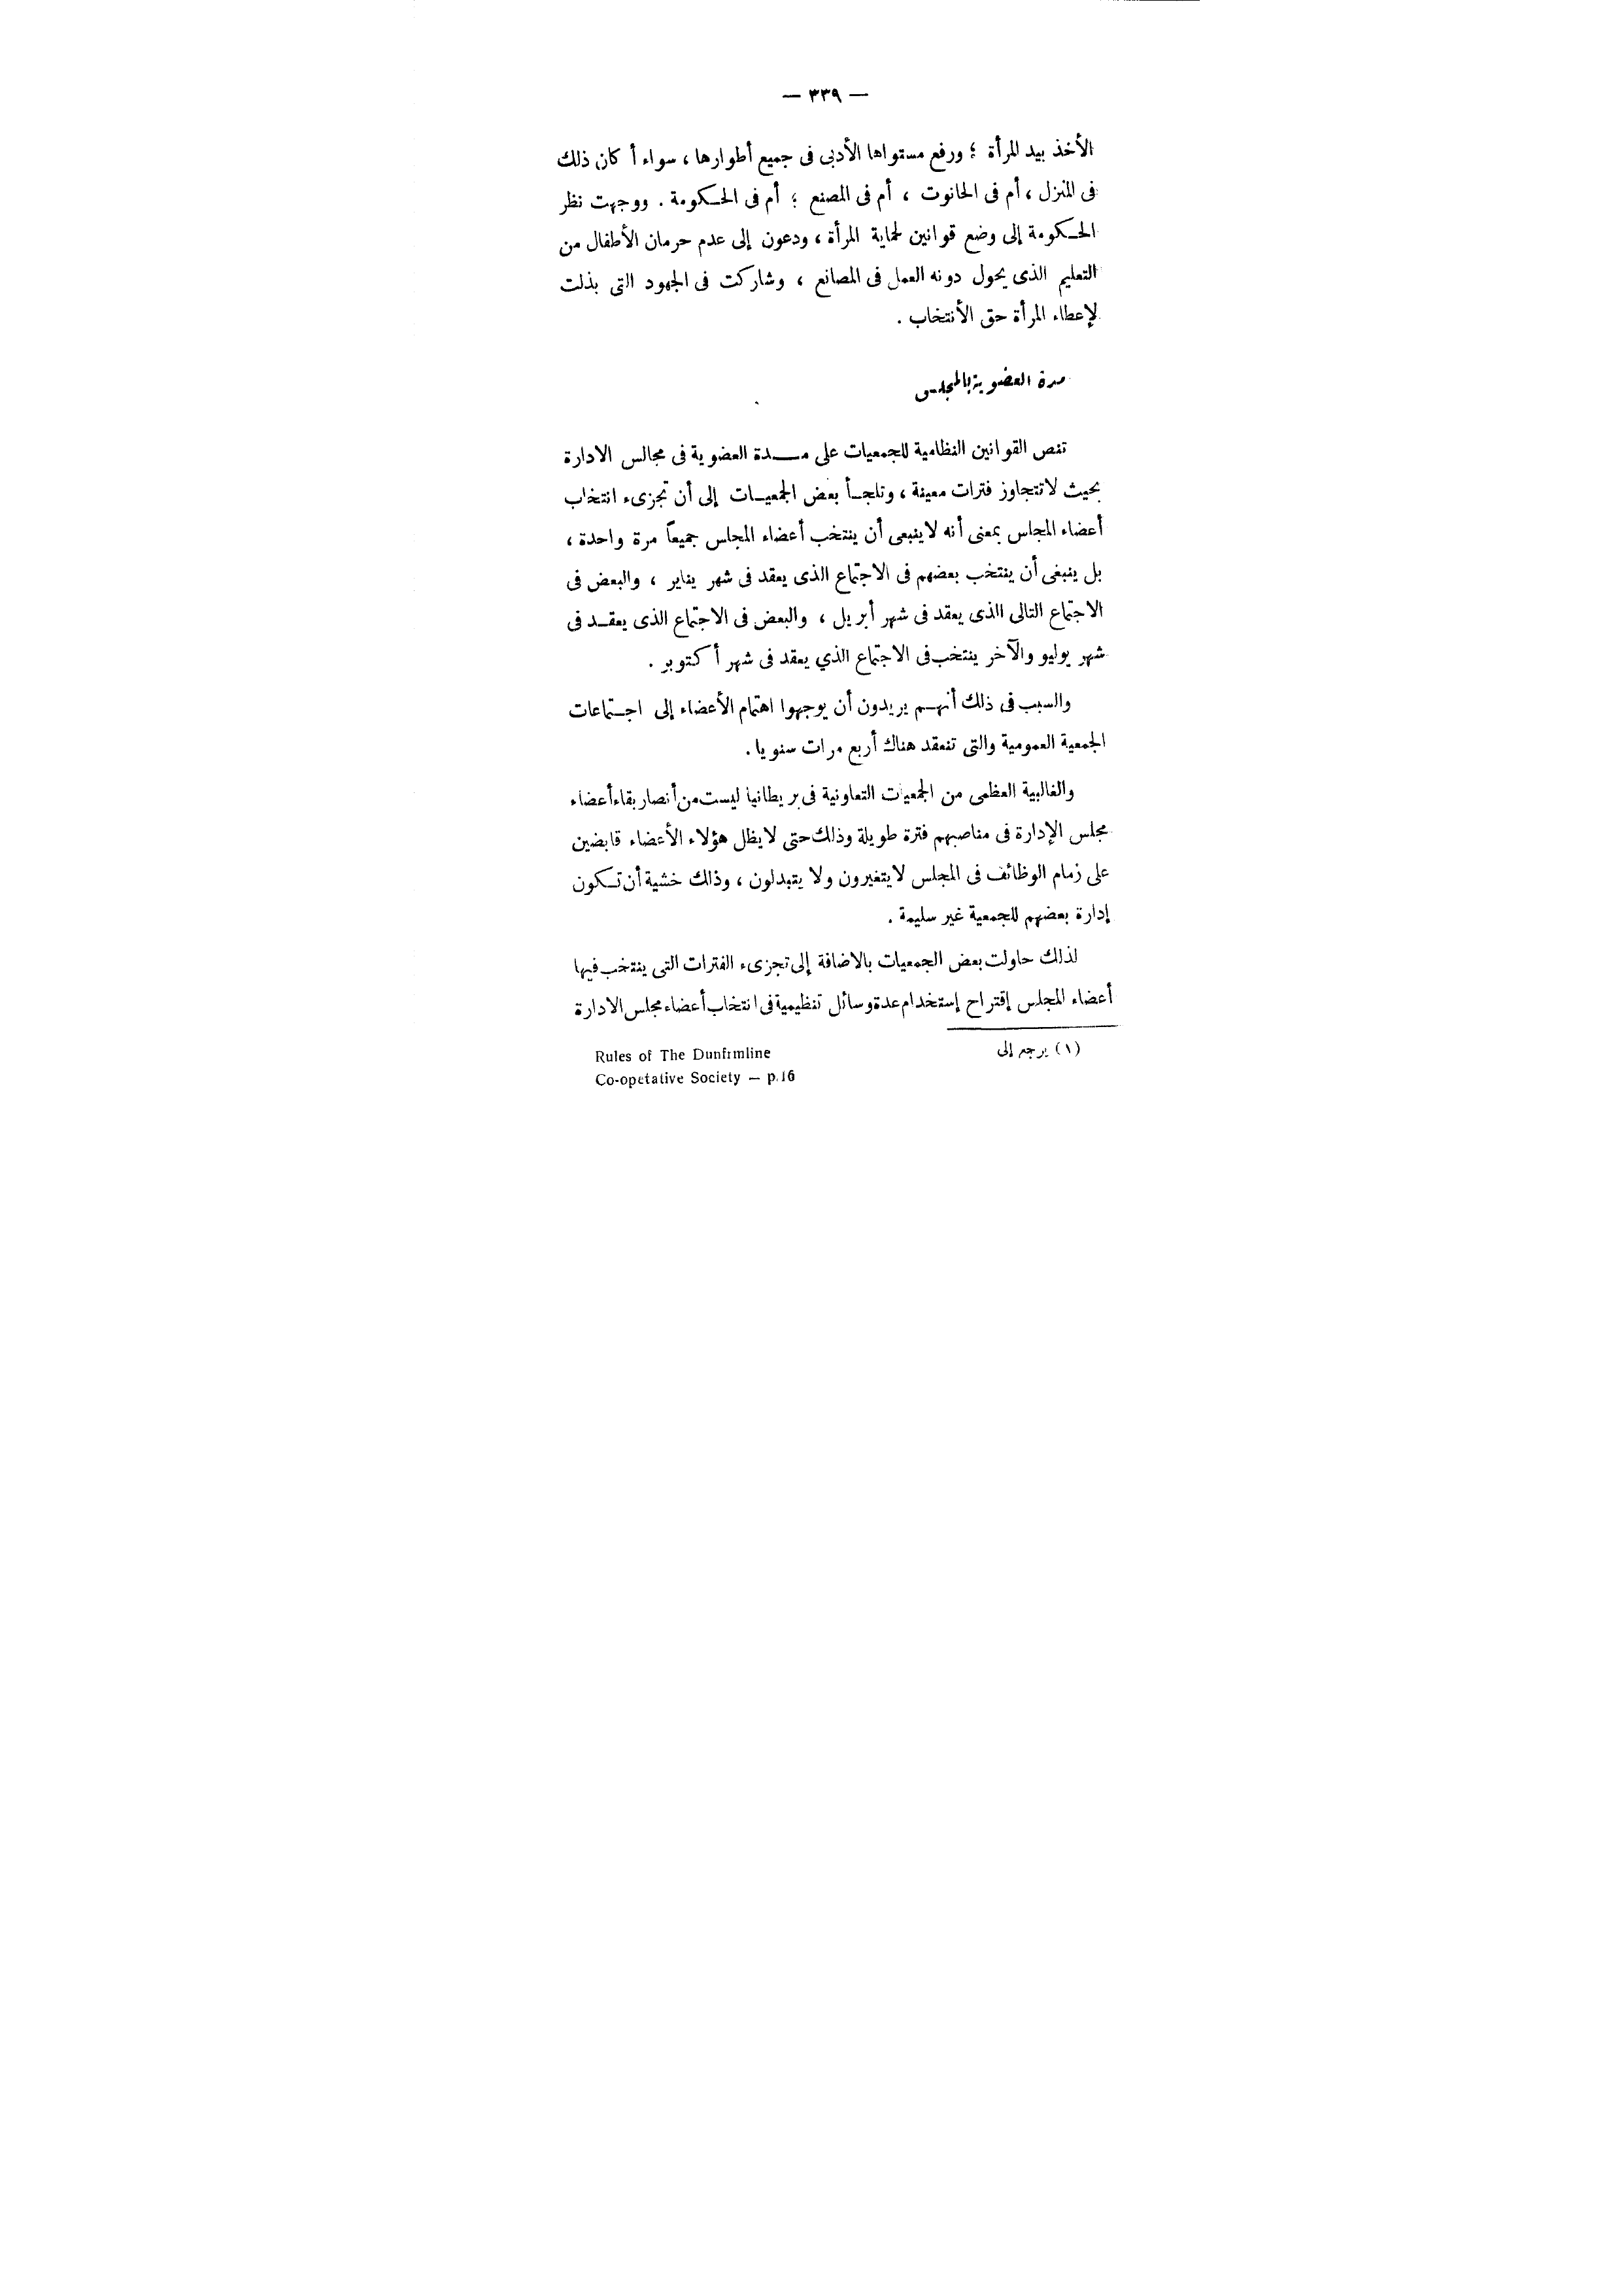 — ٣٣٩ —
الأخذ بيد المرأة ؛ ورفع مستواها الأدبى فى جميع أطوارها ، سواء أ كان ذلك
فى المنزل ، أم فى الحانوت ، أم فى المصنع ؛ أم فى الحكومة . ووجهت نظر
الحكومة إلى وضع قوانين لحماية المرأة ، ودعون إلى عدم حرمان الأطفال من
التعليم الذى يحول دونه العمل فى المصانع ، وشاركت فى الجهود التى بذلت
لإعطاء المرأة حق الأنتخاب .
مدة العضوية بالمجلس
تنص القوانين النظامية للجمعيات على مدة العضوية فى مجالس الادارة
بحيث لا تتجاوز فترات معينة ، وتلجأ بعض الجمعيات إلى أن تجزىء انتخاب
أعضاء المجلس بمعنى أنه لا ينبغى أن ينتخب أعضاء المجلس جميعاً مرة واحدة ،
بل ينبغى أن ينتخب بعضهم فى الاجتماع الذى يعقد فى شهر يناير ، والبعض فى
الاجتماع التالى الذى يعقد فى شهر أبريل ، والبعض فى الاجتماع الذى يعقد فى
شهر يوليو والآخر ينتخب فى الاجتماع الذي يعقد فى شهر أ كتوبر .
والسبب فى ذلك أنهم يريدون أن يوجهوا اهتمام الأعضاء إلى اجتماعات
الجمعية العمومية والتى تنعقد هناك أربع مرات سنويا .
والغالبية العظمى من الجمعيات التعاونية فى بريطانيا ليست من أنصار بقاء أعضاء
مجلس الإدارة فى مناصبهم فترة طويلة وذلك حتى لا يظل هؤلاء الأعضاء قابضين
على زمام الوظائف فى المجلس لا يتغيرون ولا يتبدلون ، وذلك خشية أن تكون
إدارة بعضهم للجمعية غير سليمة .
لذلك حاولت بعض الجمعيات بالاضافة إلى تجزىء الفترات التى ينتخب فيها
أعضاء المجلس إقتراح إستخدام عدة وسائل تنظيمية فى انتخاب أعضاء مجلس الادارة
(١) يرجع إلى Rules of The Dunfrmline
Co-opetative Society — p.16